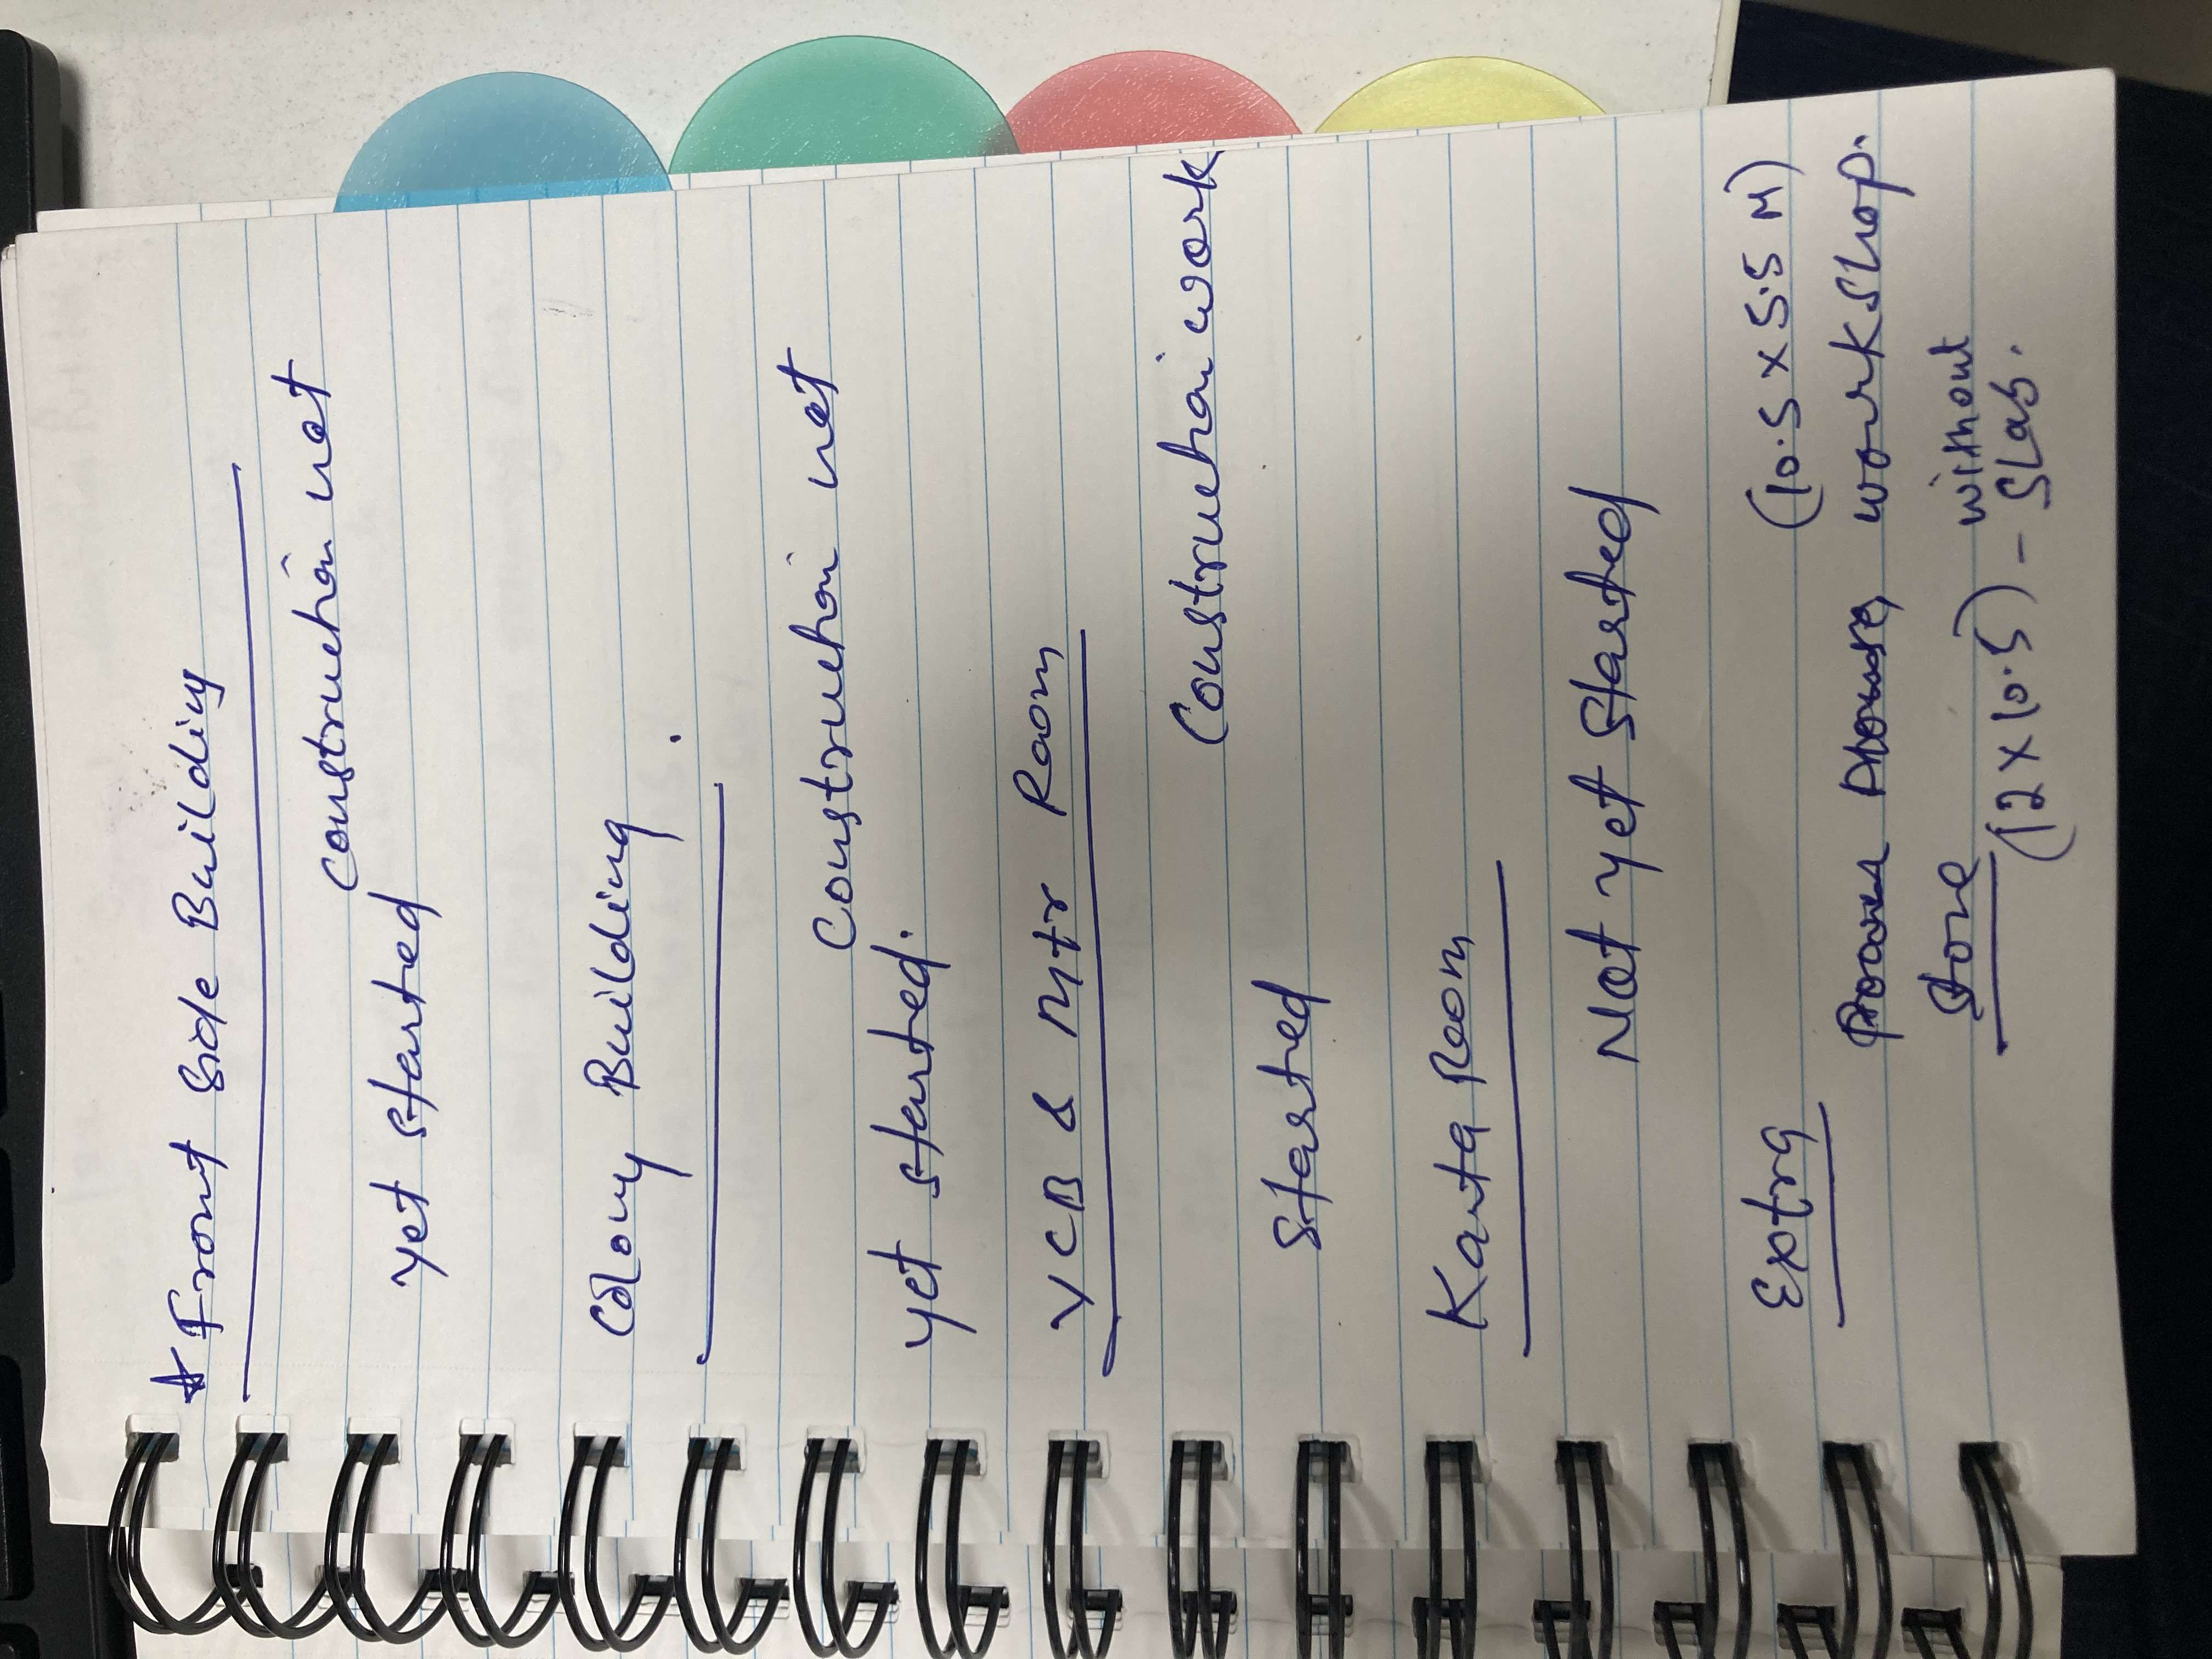 * Front Side Building
Construction not
yet started
Colony Building.
Construction not
yet started.
VCB & Mtr Room
Construction work
Started
Kanta Room
Not yet Started
(10.5 x 5.5 M)
Extra Power House, workshop.
Store (12 x 10.5) - without
Slab.